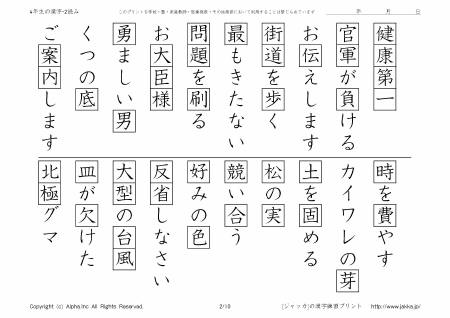 4年生の漢字-2読み
このプリントを学校・塾・家庭教師・医療機関・その他施設において利用することは禁じられています
年 月 日
健康第一
官軍が負ける
お伝えします
街道を歩く
最もきたない
問題を刷る
お大臣様
勇ましい男
くつの底
ご案内します
時を費やす
カイワレの芽
土を固める
松の実
競い合う
好みの色
反省しなさい
大型の台風
皿が欠けた
北極グマ
Copyright (c) Alpha.Inc All Rights Reserved.
2/10
[ジャッカ]の漢字練習プリント http://www.jakka.jp/